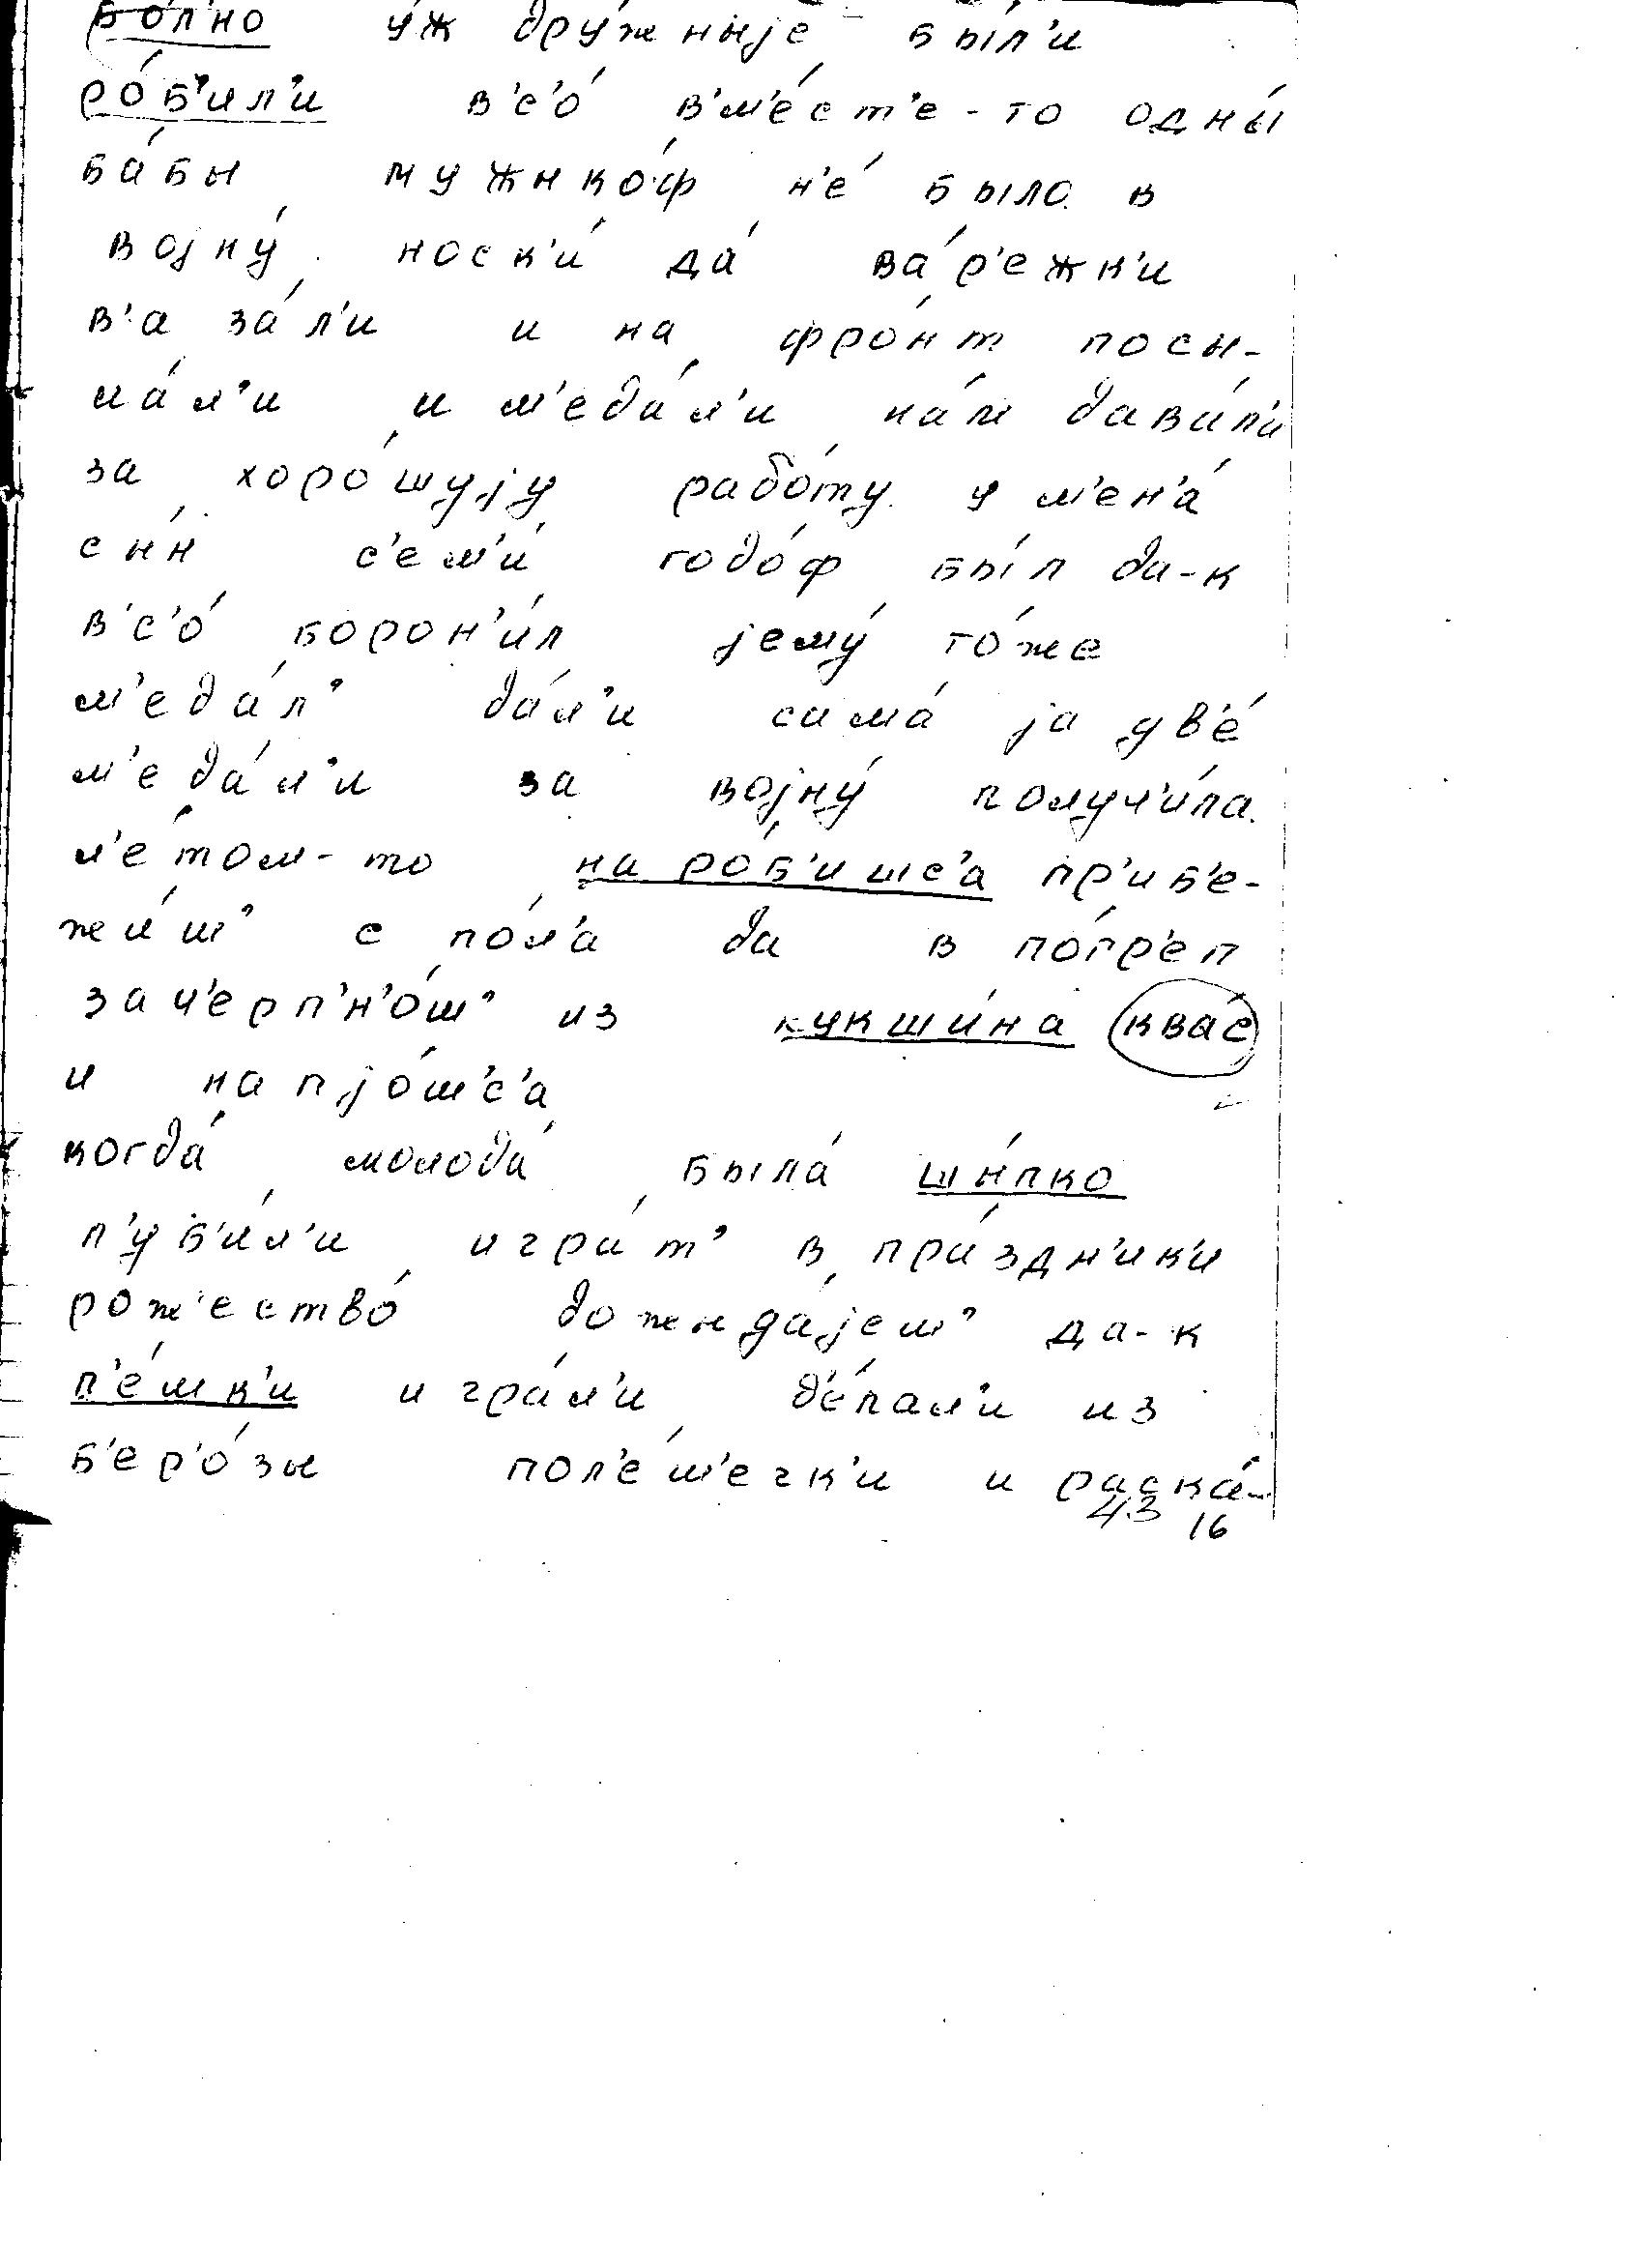 бо́л'но у́ж дру́жныjе бы́л'и
ро́б'ил'и в'с'о́ в'м'е́ст'е-то одны́
ба́бы мужыко́ф н'е́ было в
воjну́ носк'и́ да́ ва́р'ежк'и
в'аза́л'и и на фро́нт посы-
ла́л'и и м'еда́л'и на́м дава́л'и
за хоро́шуjу рабо́ту у м'ен'а́
сы́н с'ем'и́ годо́ф бы́л да-к
в'с'о́ борон'и́л jему́ то́же
м'еда́л' да́л'и сама́ jа дв'е́
м'еда́л'и за воjну́ получ'и́ла
л'е́том-то наро́б'ишс'а пр'иб'е-
жи́ш' с по́л'а да в по́гр'еп
зач'ерп'н'о́ш' из кукши́на ква́с
и напjо́ш'с'а
когда́ молода́ была́ шы́пко
л'уб'и́л'и игра́т' в пра́здн'ик'и
рож'ество́ дожыда́jеш' да-к
п'е́шк'и игра́л'и д'е́лал'и из
б'ер'о́зы пол'е́ш'ечк'и и раска́-
43
16